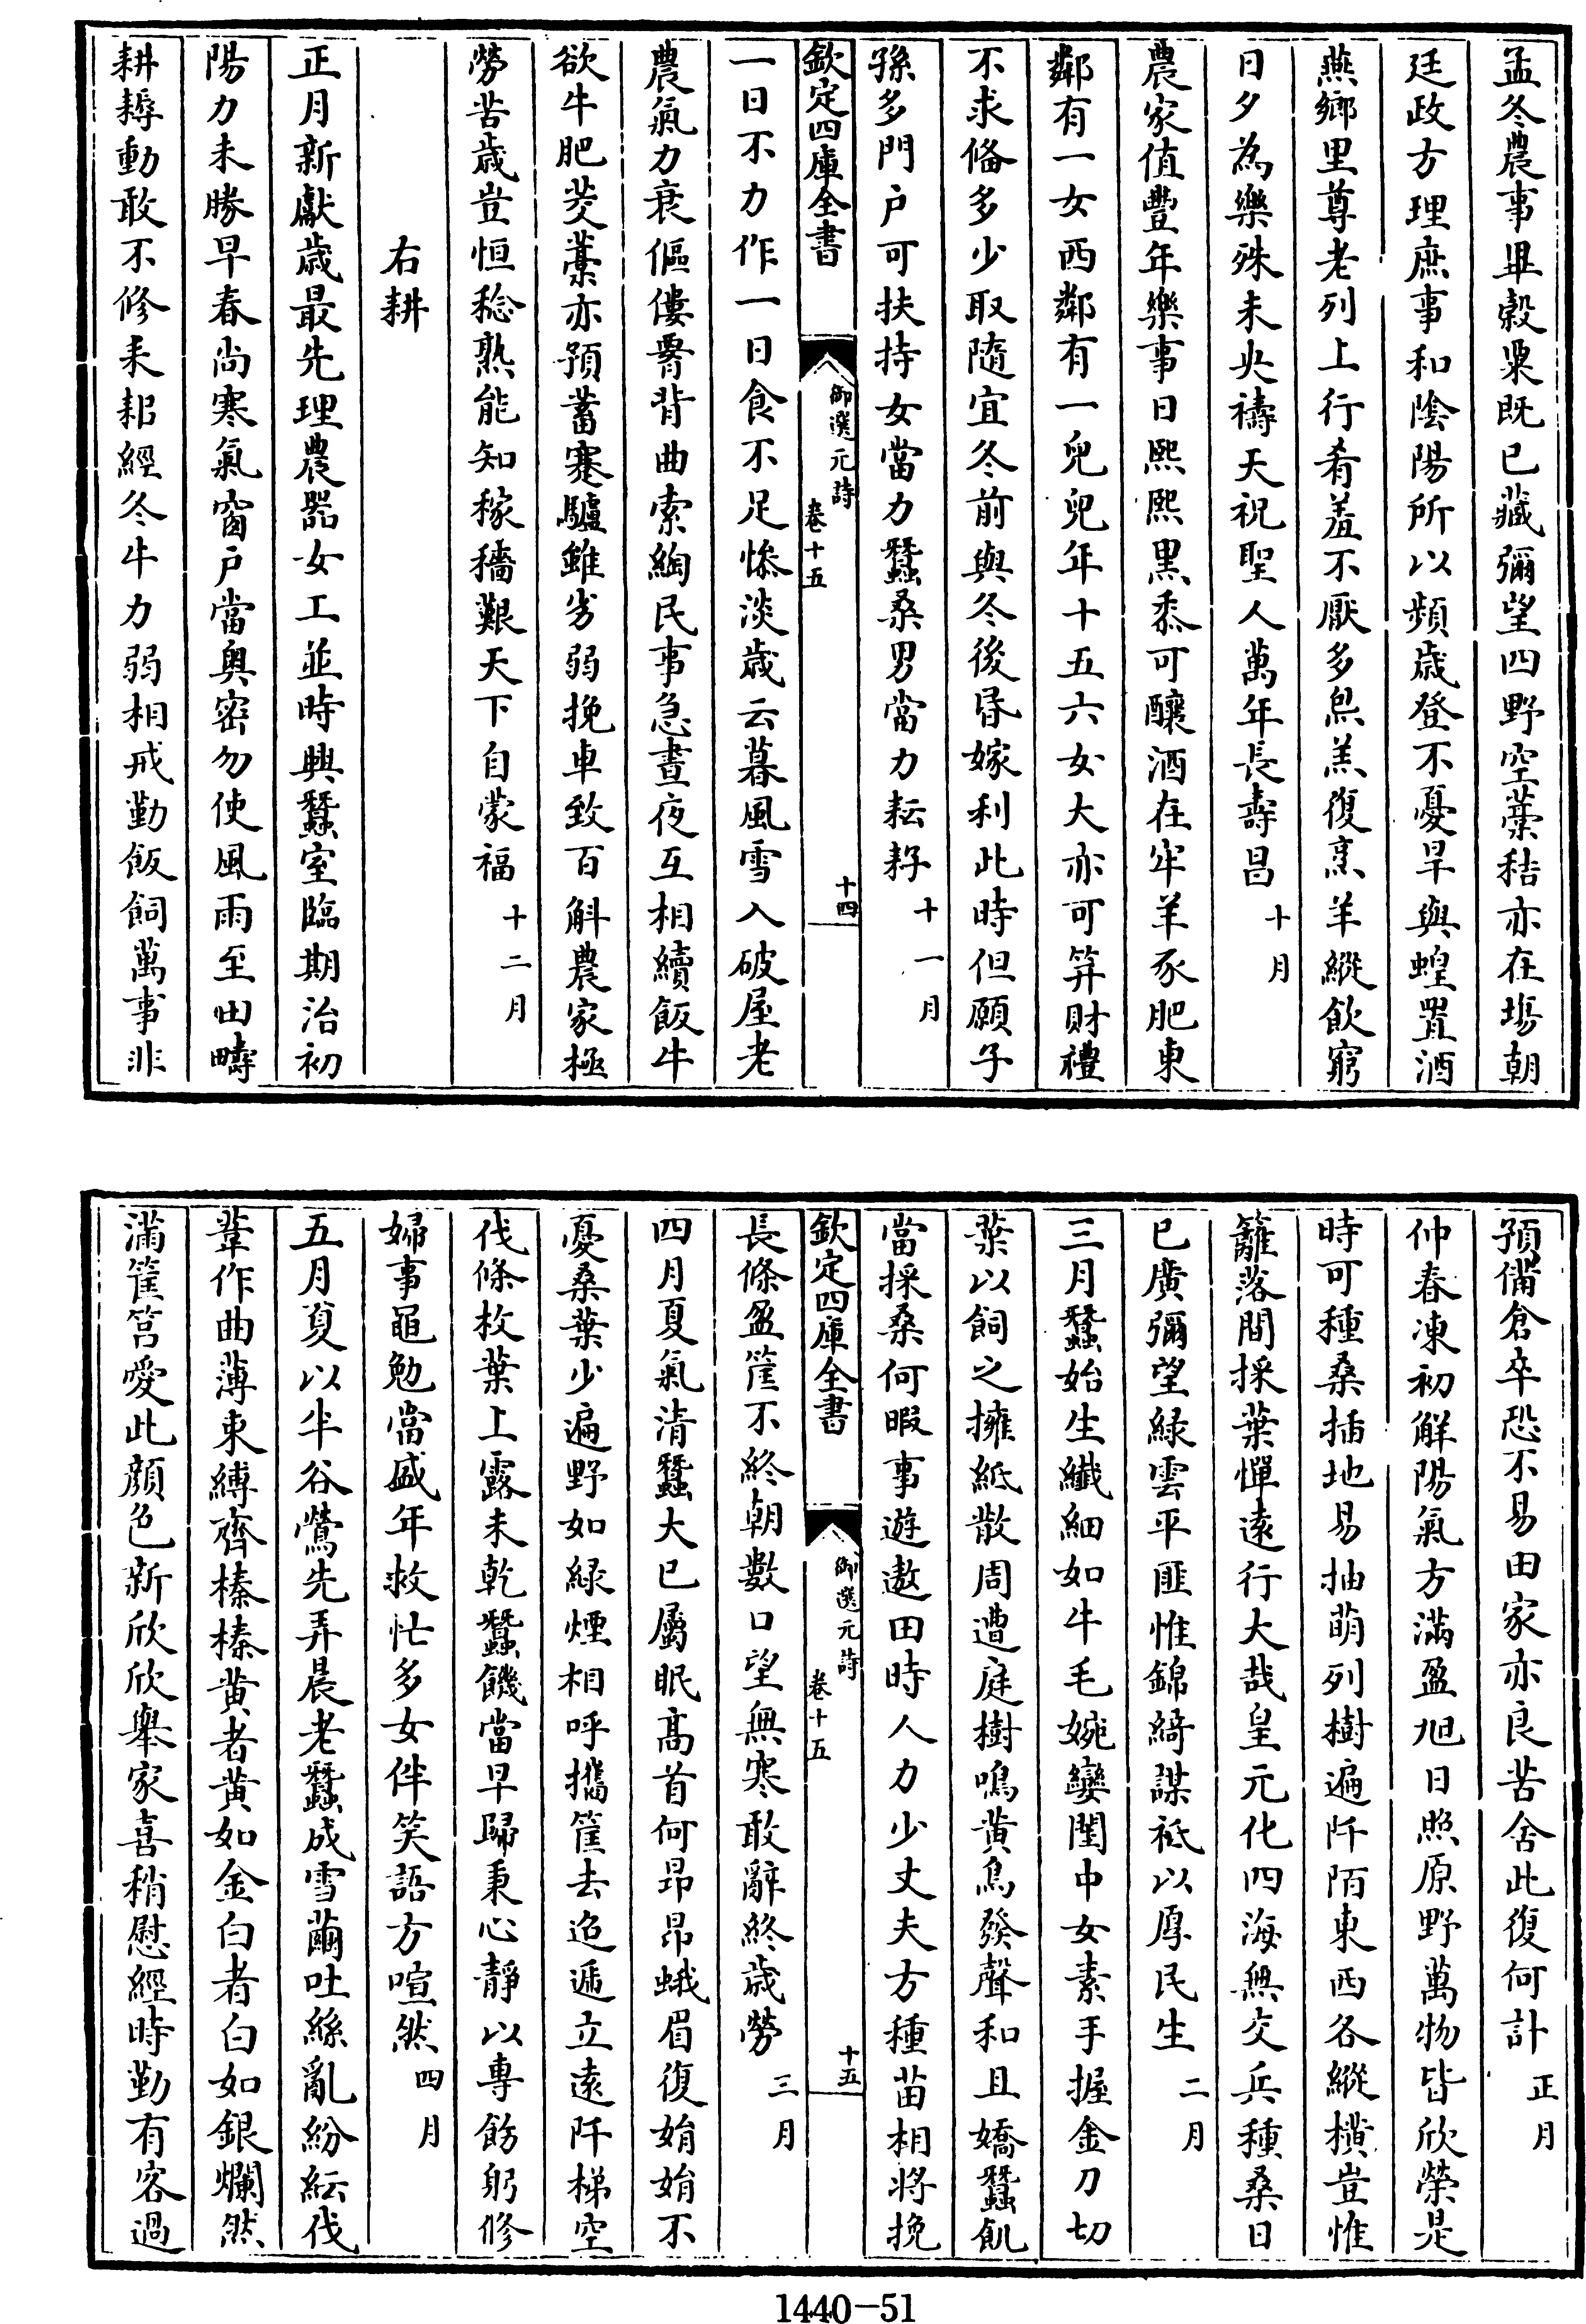 孟冬農事畢穀粟既已藏彌望四野空藁秸亦在塲朝
廷政方理庶事和陰陽所以頻歳登不憂旱與蝗置酒
燕鄉里尊老列上行肴羞不厭多炰羔復烹羊縱飲窮
日夕為樂殊未央禱天祝聖人萬年長壽昌 十月
農家值豐年樂事日熙熙黒黍可釀酒在牢羊豕肥東
鄰有一女西鄰有一兒兒年十五六女大亦可筭財禮
不求備多少取隨宜冬前與冬後昏嫁利此時但願子
孫多門户可扶持女當力蠶桑男當力耘耔 十一月
欽定四庫全書
御選元詩
卷十五
十四
一日不力作一日食不足慘淡歳云暮風雪入破屋老
農氣力衰傴僂膂背曲索綯民事急晝夜互相續飯牛
欲牛肥茭藁亦預蓄蹇驢雖劣弱挽車致百斛農家極
勞苦歳豈恒稔熟能知稼穡艱天下自蒙福 十二月
右耕
正月新獻歳最先理農器女工並時興蠶室臨期治初
陽力未勝早春尚寒氣窗户當奥密勿使風雨至田疇
耕耨動敢不修耒耜經冬牛力弱相戒勤飯飼萬事非
預備倉卒恐不易田家亦良苦舍此復何計 正月
仲春凍初解陽氣方滿盈旭日照原野萬物皆欣榮是
時可種桑插地易抽萌列樹遍阡陌東西各縱横豈惟
籬落間採葉憚遠行大哉皇元化四海無交兵種桑日
已廣彌望緑雲平匪惟錦綺謀祗以厚民生 二月
三月蠶始生纖細如牛毛婉孌閨中女素手握金刀切
葉以飼之擁紙散周遭庭樹鳴黄鳥發聲和且嬌蠶飢
當採桑何暇事遊遨田時人力少丈夫方種苗相将挽
欽定四庫全書
御選元詩
卷十五
十五
長條盈筐不終朝數口望無寒敢辭終歳勞 三月
四月夏氣清蠶大已屬眠髙首何昻昻蛾眉復娟娟不
憂桑葉少遍野如緑煙相呼攜筐去迢遞立遠阡梯空
伐條枚葉上露未乾蠶饑當早歸秉心靜以專飭躬修
婦事黽勉當盛年救忙多女伴笑語方喧然 四月
五月夏以半谷鶯先弄晨老蠶成雪繭吐絲亂紛紜伐
葦作曲薄束縛齊榛榛黄者黄如金白者白如銀爛然
滿筐筥愛此顔色新欣欣舉家喜稍慰經時勤有客過
1440—51